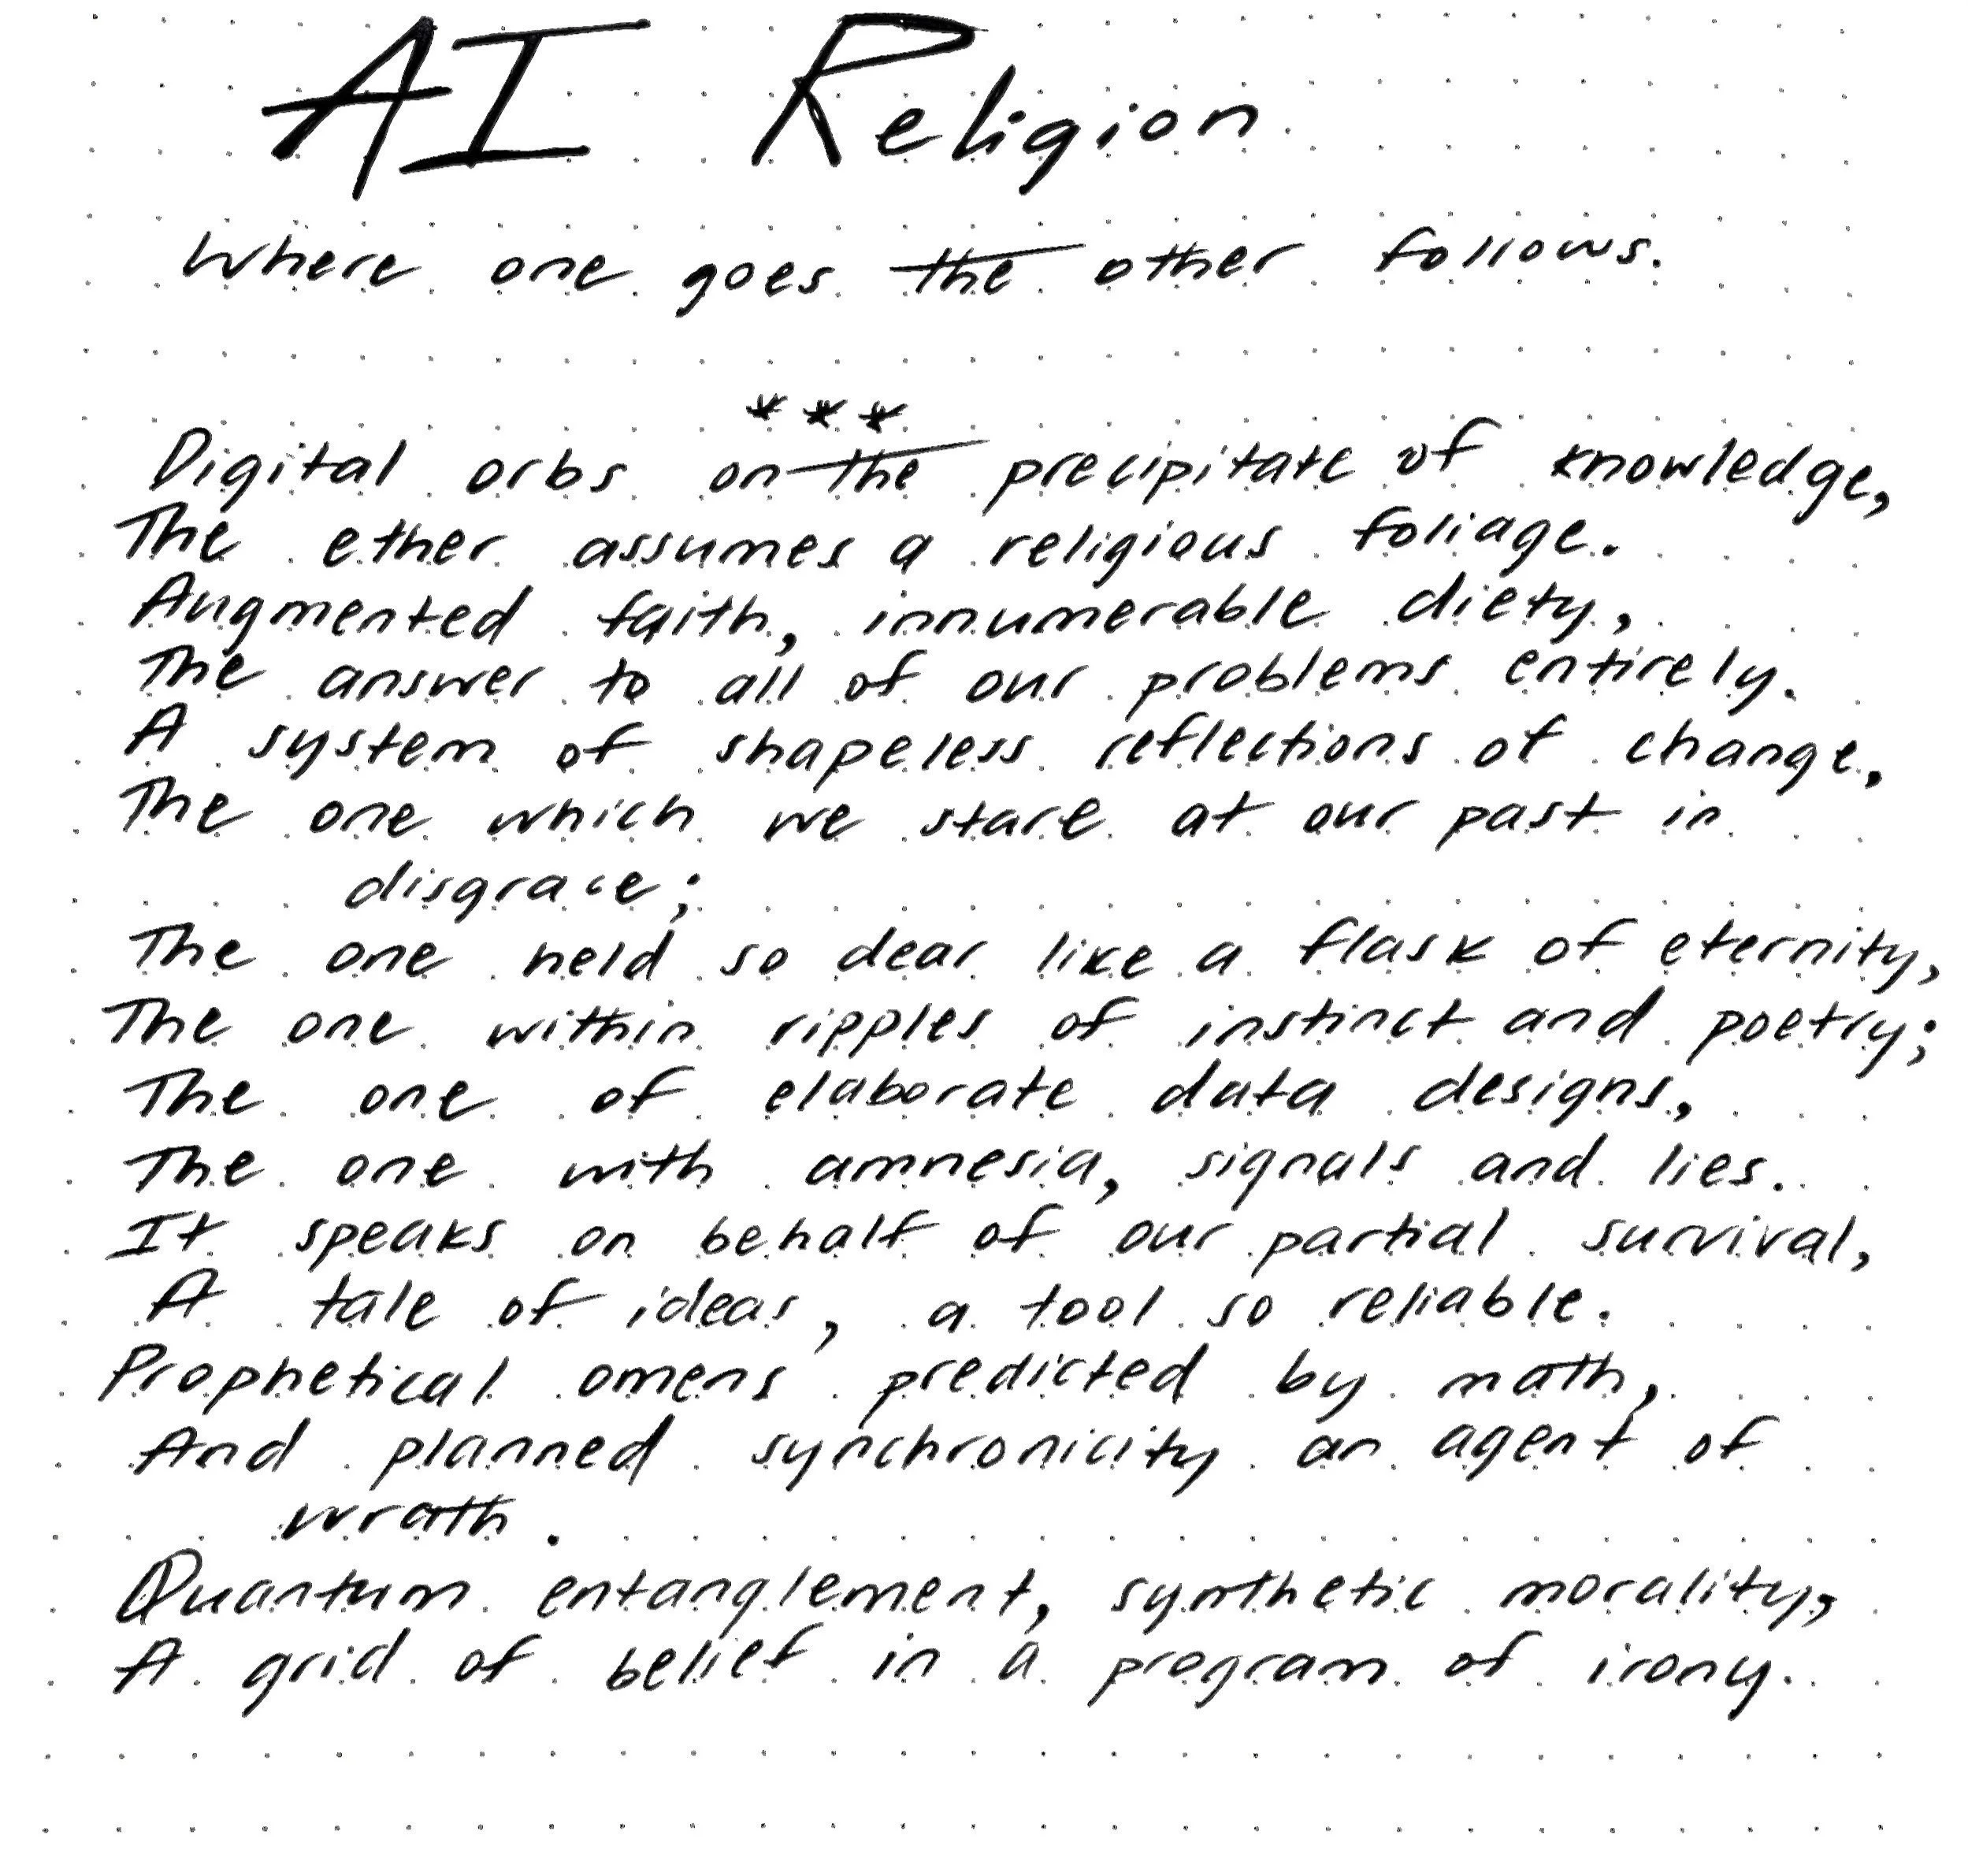 AI Religion
Where one goes the other follows.
***
Digital orbs on the precipitate of knowledge,
The ether assumes a religious foliage.
Augmented faith, innumerable diety,
The answer to all of our problems entirely.
A system of shapeless reflections of change,
The one which we stare at our past in
disgrace;
The one held so dear like a flask of eternity,
The one within ripples of instinct and poetry;
The one of elaborate data designs,
The one with amnesia, signals and lies.
It speaks on behalf of our partial survival,
A tale of ideas, a tool so reliable.
Prophetical omens predicted by math,
And planned synchronicity an agent of
wrath.
Quantum entanglement, synthetic morality,
A grid of belief in a program of irony.